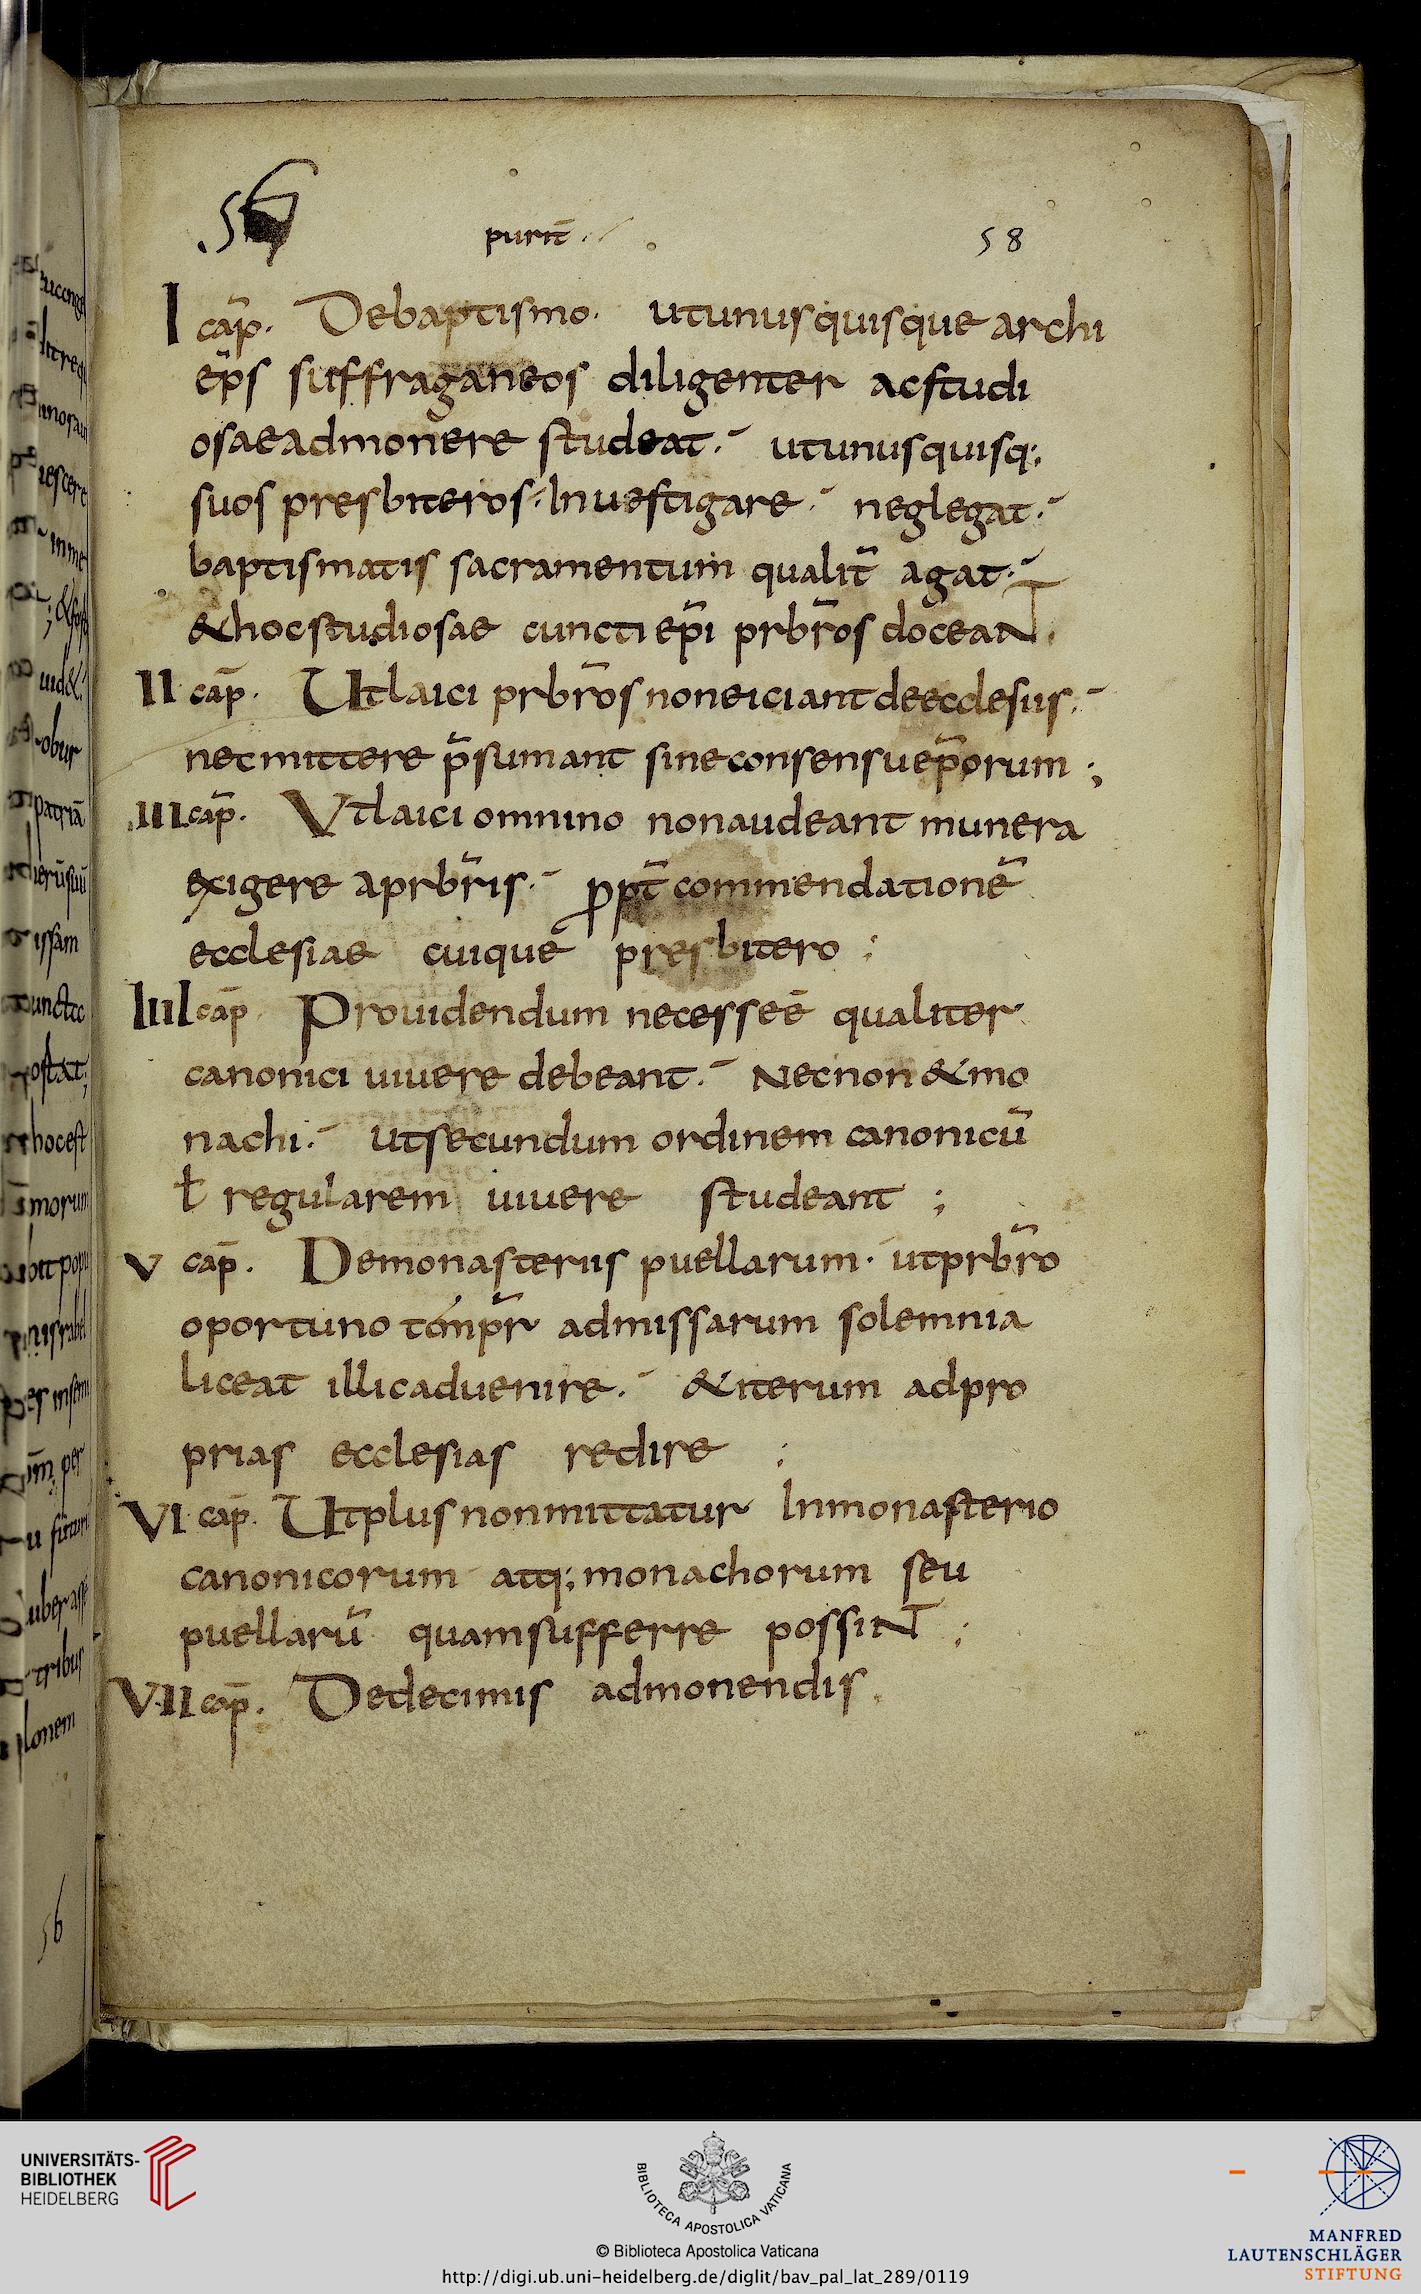 56
purit̄
58
I cap̄. Debaptismo. utunusquisque archi
ep̄s suffraganeos diligenter acstudi
osaeadmonere studeat. utunusquisq;
suos presbiteros. Inuestigare. neglegat.
baptismatis sacramentum qualit̄ agat.
&hocstudiosae cuncti ep̄i prbr̄os doceaNT.
II cap̄. Utlaici prbr̄os noneiciant deecclesiis.
necmittere p̄sumant sineconsensuep̄orum ;
III cap̄. Vtlaici omnino nonaudeant munera
exigere aprbr̄is. ꝓpt̄ commendationē
ecclesiae cuique presbitero ;
IIII cap̄ Prouidendum necesseē qualiter
canonici uiuere debeant. Necnon &mo
nachi. utsecundum ordinem canonicū
ł regularem uiuere studeant ;
V cap̄. Demonasteriis puellarum. utprbr̄o
oportuno temp̄r admissarum solemnia
liceat illicaduenire. &iterum adpro
prias ecclesias redire ;
VI cap̄. Utplus nonmittatur Inmonasterio
canonicorum atq; monachorum seu
puellarū quamsufferre possiNT ;
VII cap̄. Dedecimis admonendis.
patriā
issam
hocest
tribus
56
UNIVERSITÄTS-
BIBLIOTHEK
HEIDELBERG
BIBLIOTECA APOSTOLICA VATICANA
© Biblioteca Apostolica Vaticana
http://digi.ub.uni-heidelberg.de/diglit/bav_pal_lat_289/0119
MANFRED
LAUTENSCHLÄGER
STIFTUNG